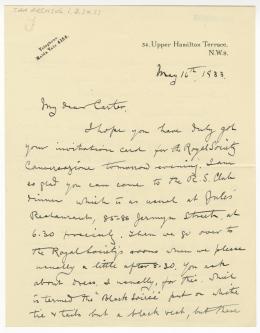 34, Upper Hamilton Terrace,
N.W.8.
Telephone
Maida Vale
May 16th, 1933
My dear Carter,
I hope you have duly got
your invitation card for the Royal Society
Conversazione tomorrow evening. I am
so glad you can come to the R.S. Club
dinner which is as usual at Jules'
Restaurant, 85-86 Jermyn Street, at
6.30 precisely. Then we go over to
the Royal Society's rooms when we please
usually a little after 8.30. You ask
about dress. I usually, for this, which
is termed the "Black Soirée" put on white
tie & tails but a black vest, but there